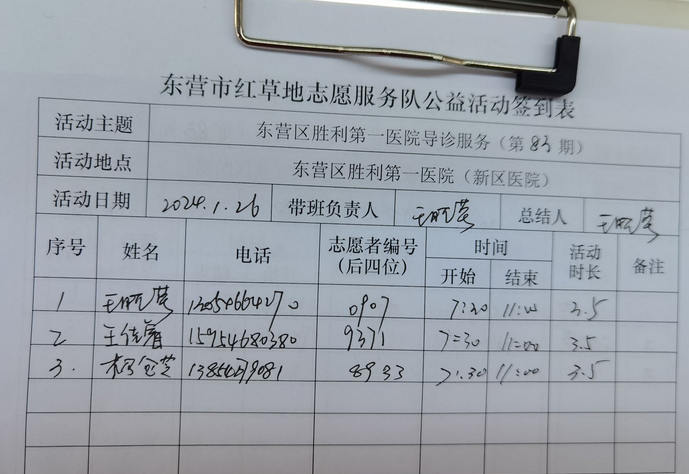 东营市红草地志愿服务队公益活动签到表
活动主题 东营区胜利第一医院导诊服务（第83期）
活动地点 东营区胜利第一医院（新区医院）
活动日期 2024.1.26 带班负责人 总结人
序号 姓名 电话 志愿者编号（后四位） 时间 开始 结束 活动时长 备注
1 0907 7:30 11:00 3.5
2 15954680380 9371 7:30 11:00 3.5
3. 8933 7:30 11:00 3.5